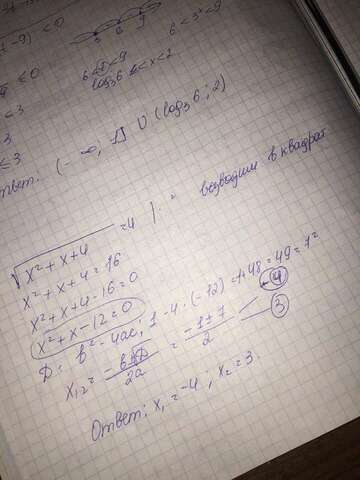 -9) < 0
≤ 0
< 3
3
≤ 3
3 6 9
6 < 3ˣ < 9
log₃6 < x < 2
(-∞; 1] ∪ (log₃6; 2)
√x²+x+4 = 4 |·² возводим в квадрат
x²+x+4=16
x²+x+4-16=0
x²+x-12=0
D = b²-4ac; 1-4·(-12)=1+48=49=7²
x₁,₂ = (-b±√D)/2a = (-1±7)/2 -4 3
Ответ: x₁=-4; x₂=3.